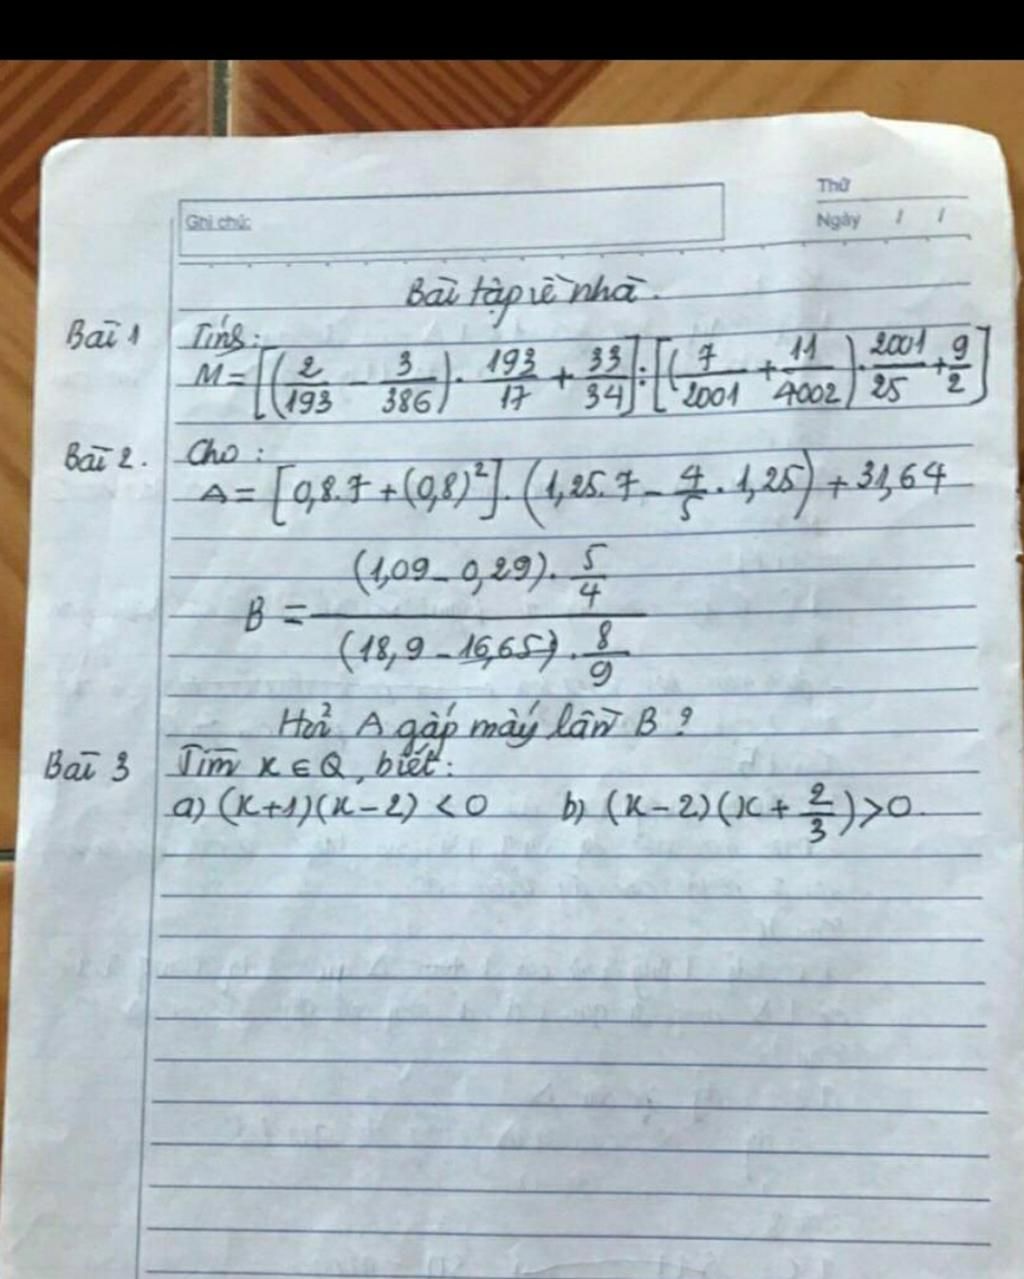 Thứ
Ghi chú:
Ngày / /
Bài tập về nhà.
Bài 1 Tính:
M = [(2/193 - 3/386) . 193/17 + 33/34] : [(7/2001 + 11/4002) . 2001/25 + 9/2]
Bài 2. Cho :
A = [0,8.7 + (0,8)²] . (1,25.7 - 4/5 . 1,25) + 31,64
B = (1,09 - 0,29) . 5/4 / (18,9 - 16,65) . 8/9
Hỏi A gấp mấy lần B ?
Bài 3 Tìm x ∈ Q, biết :
a) (x+1)(x-2) < 0 b) (x-2)(x + 2/3) > 0.